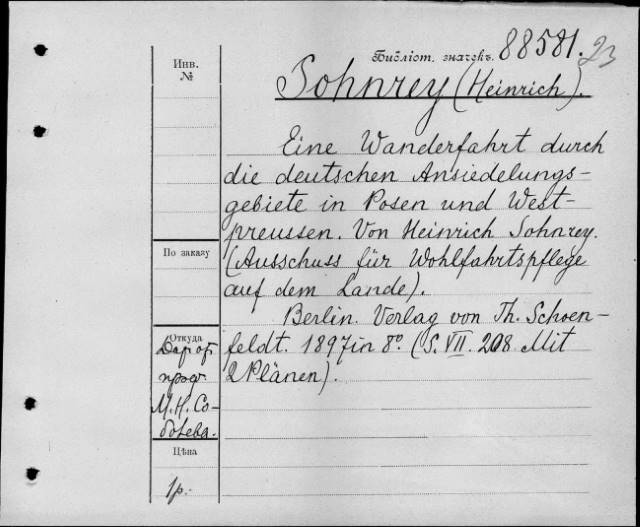 Библіот. значекъ. 88581.
23
Инв.
№
Sohnrey (Heinrich).
Eine Wanderfahrt durch
die deutschen Ansiedelungs-
gebiete in Posen und West-
preussen. Von Heinrich Sohnrey.
По заказу
(Ausschuss für Wohlfahrtspflege
auf dem Lande).
Berlin. Verlag von Th. Schoen-
Откуда
feldt. 1897 in 8° (S. VII. 208 Mit
2 Plänen).
Дар от
проф.
М. Н. Со-
болева.
Цѣна
1 р.